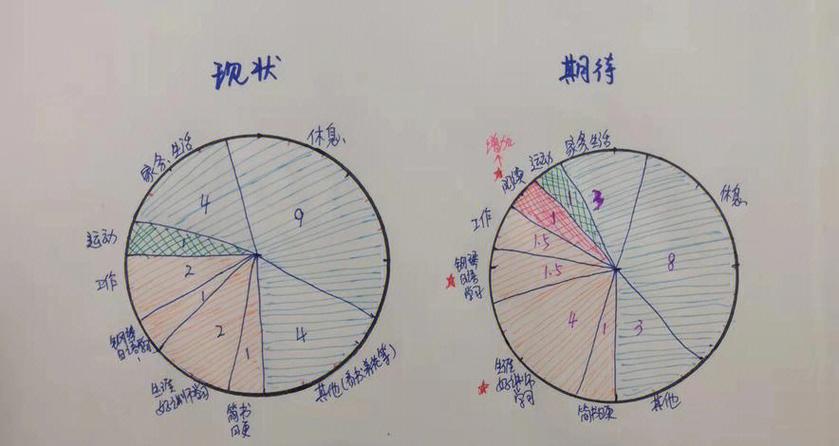 现状
休息
家务、生活
9
4
运动
1
工作
2
1
2
1
4
日语学习
生涯
好讲师学习
简书
日更
其他(看书、养花等)
期待
增加
阅读
运动
家务、生活
休息
1
1
3
工作
1.5
8
钢琴
日语
学习
1.5
4
1
3
生涯
好讲师
学习
简书日更
其他